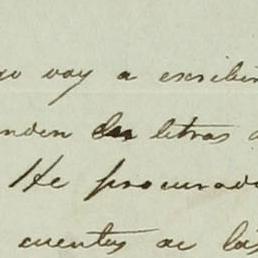 go voy a escribir
nden las letras a
He procurado
cuentas de las